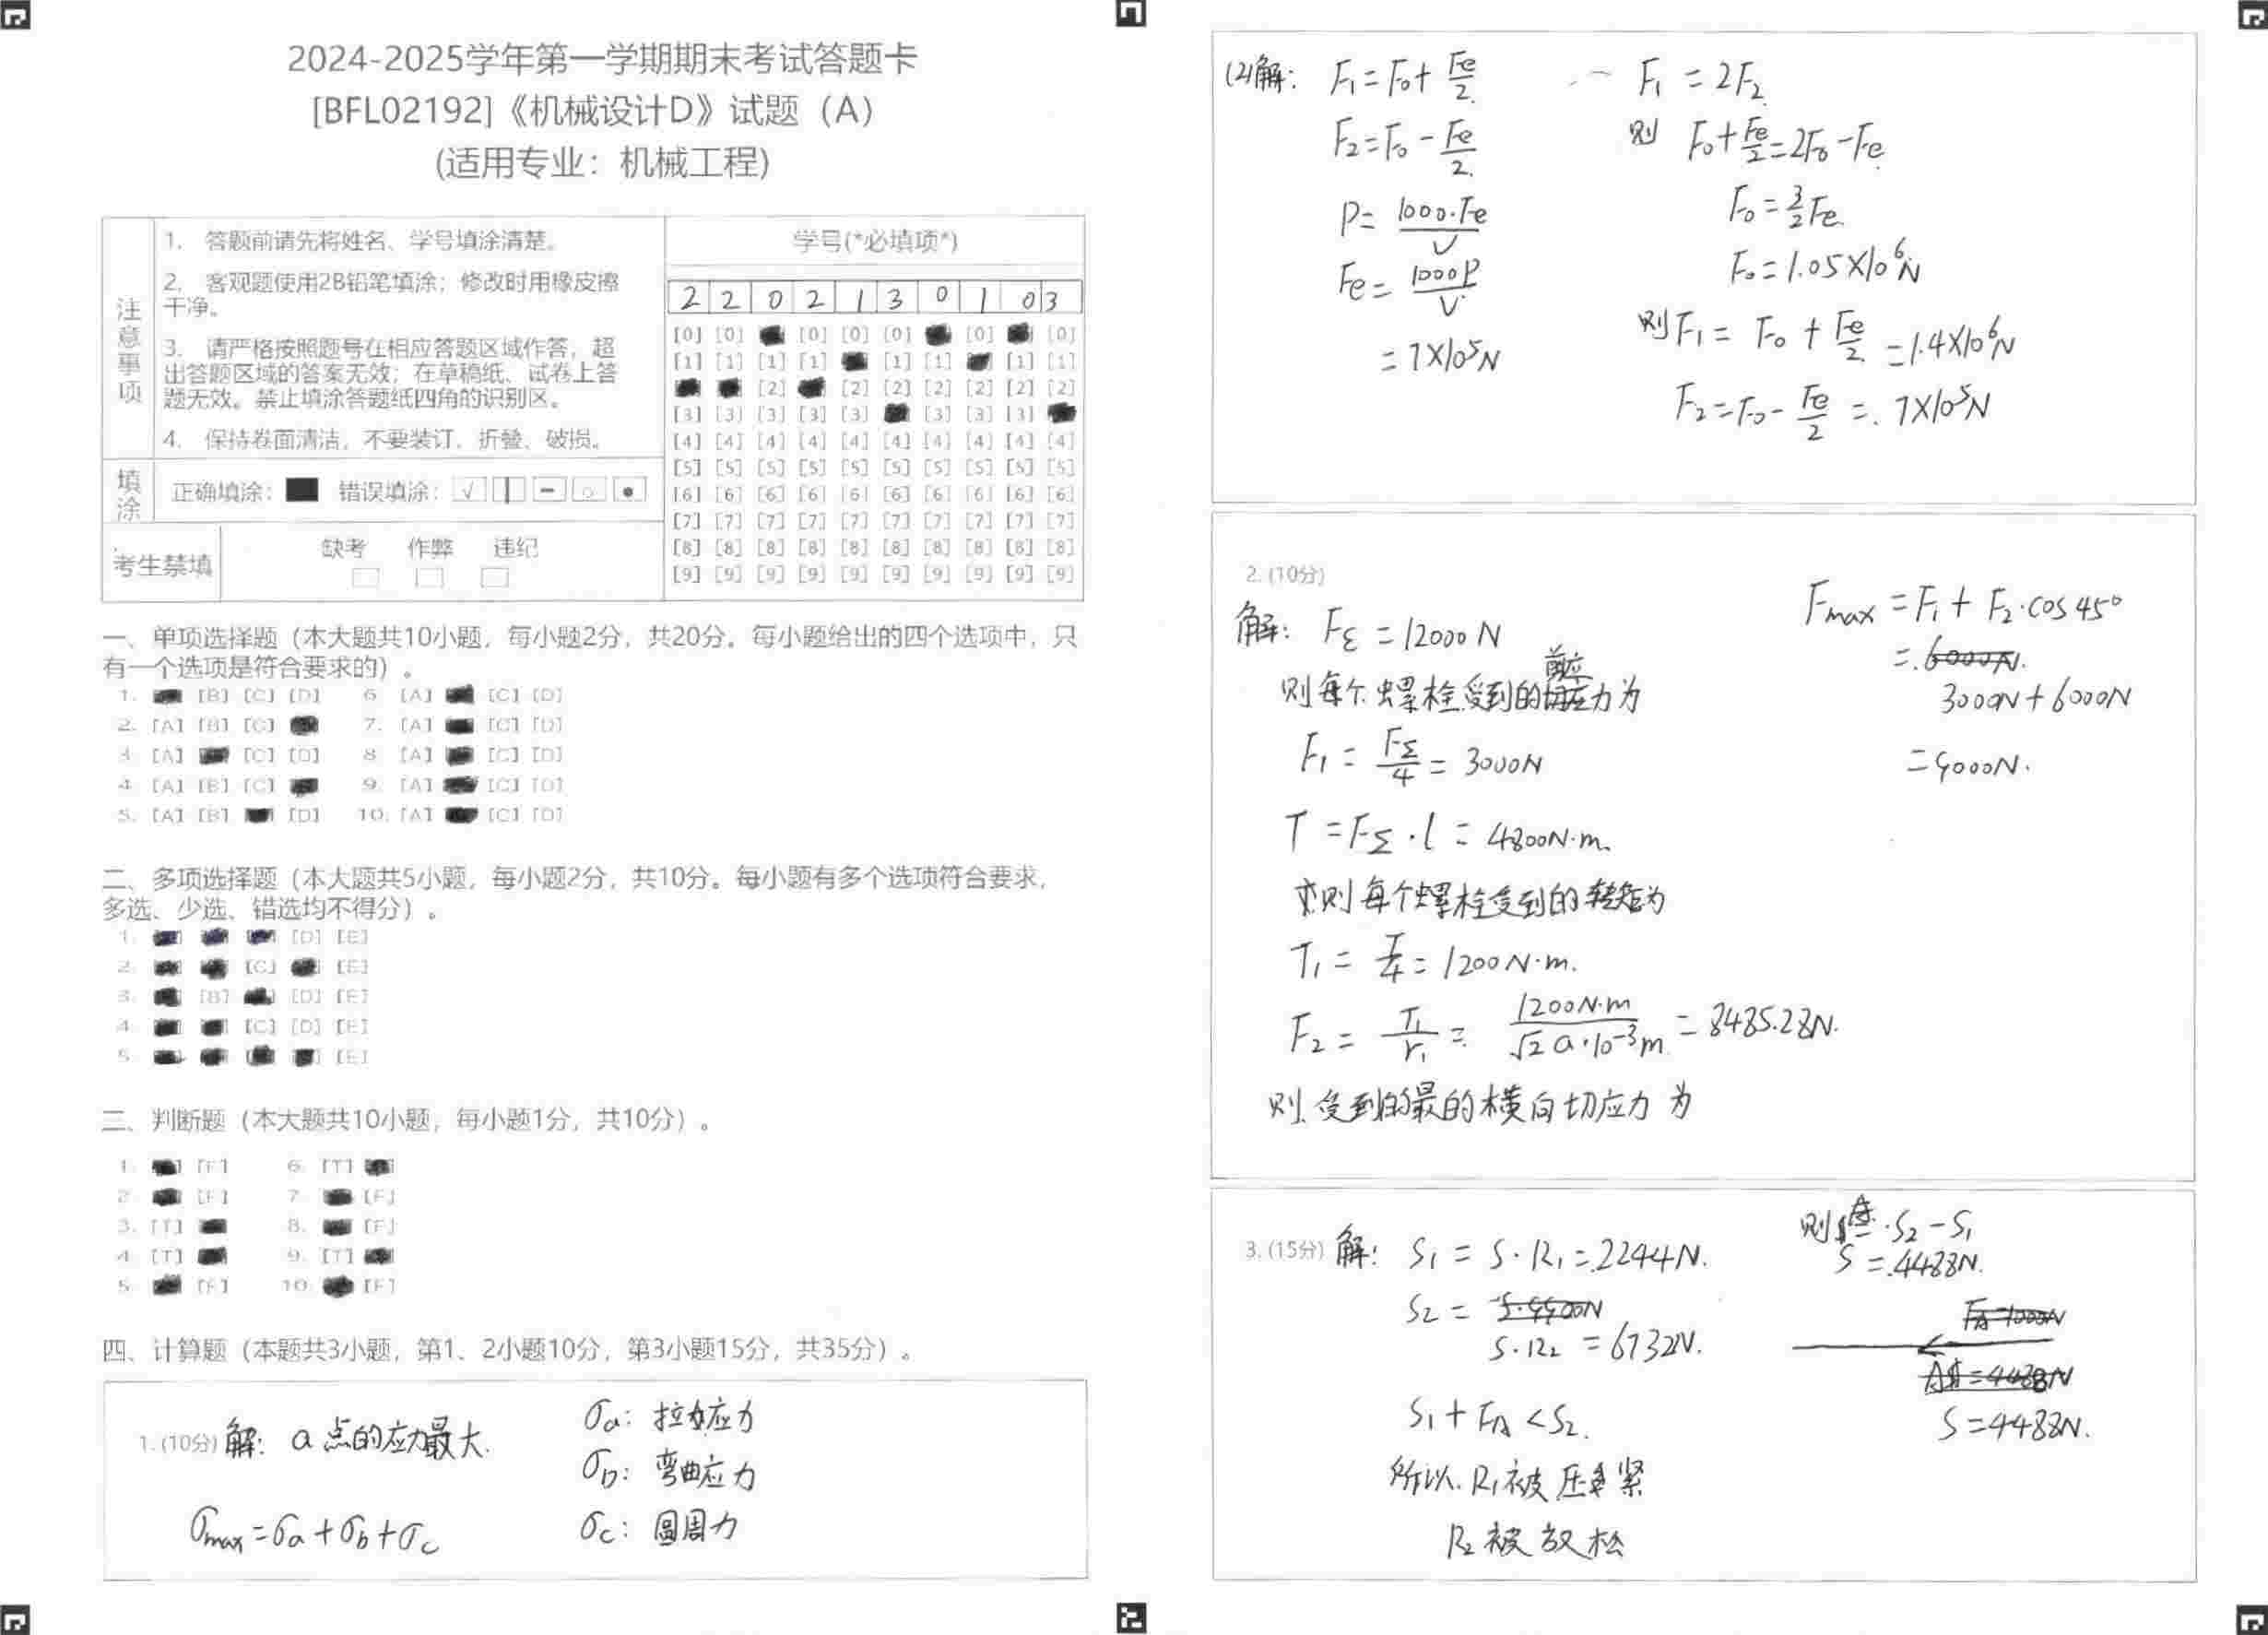 2024-2025学年第一学期期末考试答题卡
[BFL02192]《机械设计D》试题（A）
(适用专业：机械工程)
注意事项
1. 答题前请先将姓名、学号填涂清楚。
2. 客观题使用2B铅笔填涂；修改时用橡皮擦
干净。
3. 请严格按照题号在相应答题区域作答，超
出答题区域的答案无效；在草稿纸、试卷上答
题无效。禁止填涂答题纸四角的识别区。
4. 保持卷面清洁，不要装订、折叠、破损。
填涂
正确填涂： 错误填涂：
考生禁填
缺考 作弊 违纪
学号(*必填项*)
2 2 0 2 1 3 0 1 0 3
[0] [0] [0] [0] [0] [0] [0]
[1] [1] [1] [1] [1] [1] [1] [1]
[2] [2] [2] [2] [2] [2] [2]
[3] [3] [3] [3] [3] [3] [3] [3]
[4] [4] [4] [4] [4] [4] [4] [4] [4] [4]
[5] [5] [5] [5] [5] [5] [5] [5] [5] [5]
[6] [6] [6] [6] [6] [6] [6] [6] [6] [6]
[7] [7] [7] [7] [7] [7] [7] [7] [7] [7]
[8] [8] [8] [8] [8] [8] [8] [8] [8] [8]
[9] [9] [9] [9] [9] [9] [9] [9] [9] [9]
一、单项选择题（本大题共10小题，每小题2分，共20分。每小题给出的四个选项中，只
有一个选项是符合要求的）。
1. [B] [C] [D] 6. [A] [C] [D]
2. [A] [B] [C] 7. [A] [C] [D]
3. [A] [C] [D] 8. [A] [C] [D]
4. [A] [B] [C] 9. [A] [C] [D]
5. [A] [B] [D] 10. [A] [C] [D]
二、多项选择题（本大题共5小题，每小题2分，共10分。每小题有多个选项符合要求，
多选、少选、错选均不得分）。
1. [D] [E]
2. [C] [E]
3. [B] [D] [E]
4. [C] [D] [E]
5. [E]
三、判断题（本大题共10小题，每小题1分，共10分）。
1. [F] 6. [T]
2. [F] 7. [F]
3. [T] 8. [F]
4. [T] 9. [T]
5. [F] 10. [F]
四、计算题（本题共3小题，第1、2小题10分，第3小题15分，共35分）。
1. (10分) 解: a点的应力最大.
σmax=σa+σb+σc
σa: 拉应力
σb: 弯曲应力
σc: 圆周力
(2)解: F₁=F₀+Fe/2
F₂=F₀-Fe/2
P=1000·Fe/V
Fe=1000P/V
=7×10⁵N
F₁=2F₂
则 F₀+Fe/2=2F₀-Fe
F₀=3/2Fe
F₀=1.05×10⁶N
则F₁=F₀+Fe/2=1.4×10⁶N
F₂=F₀-Fe/2=7×10⁵N
2. (10分)
解: FΣ=12000N
则每个螺栓受到的力为
F₁=FΣ/4=3000N
T=FΣ·l=4800N·m.
则每个螺栓受到的转矩为
T₁=T/4=1200N·m.
F₂=T₁/r₁=1200N·m/√2a·10⁻³m=8485.28N.
则受到的最的横向切应力为
Fmax=F₁+F₂·cos45°
=6000N.
3000N+6000N
=9000N.
3. (15分) 解: S₁=S·R₁=2244N.
S₂=
S·R₂=6732N.
S₁+FA<S₂.
所以R₁被压紧
R₂被放松
则 S₂-S₁
S=4488N.
FA=1000N
S=4488N.